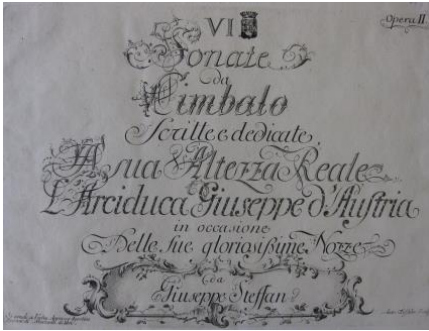 VI
Opera II
Sonate
da
Cimbalo
Scritte e dedicate
A sua Altezza Reale
L'Arciduca Giuseppe d'Austria
in occasione
Delle sue gloriosissime Nozze
da
Giuseppe Steffan